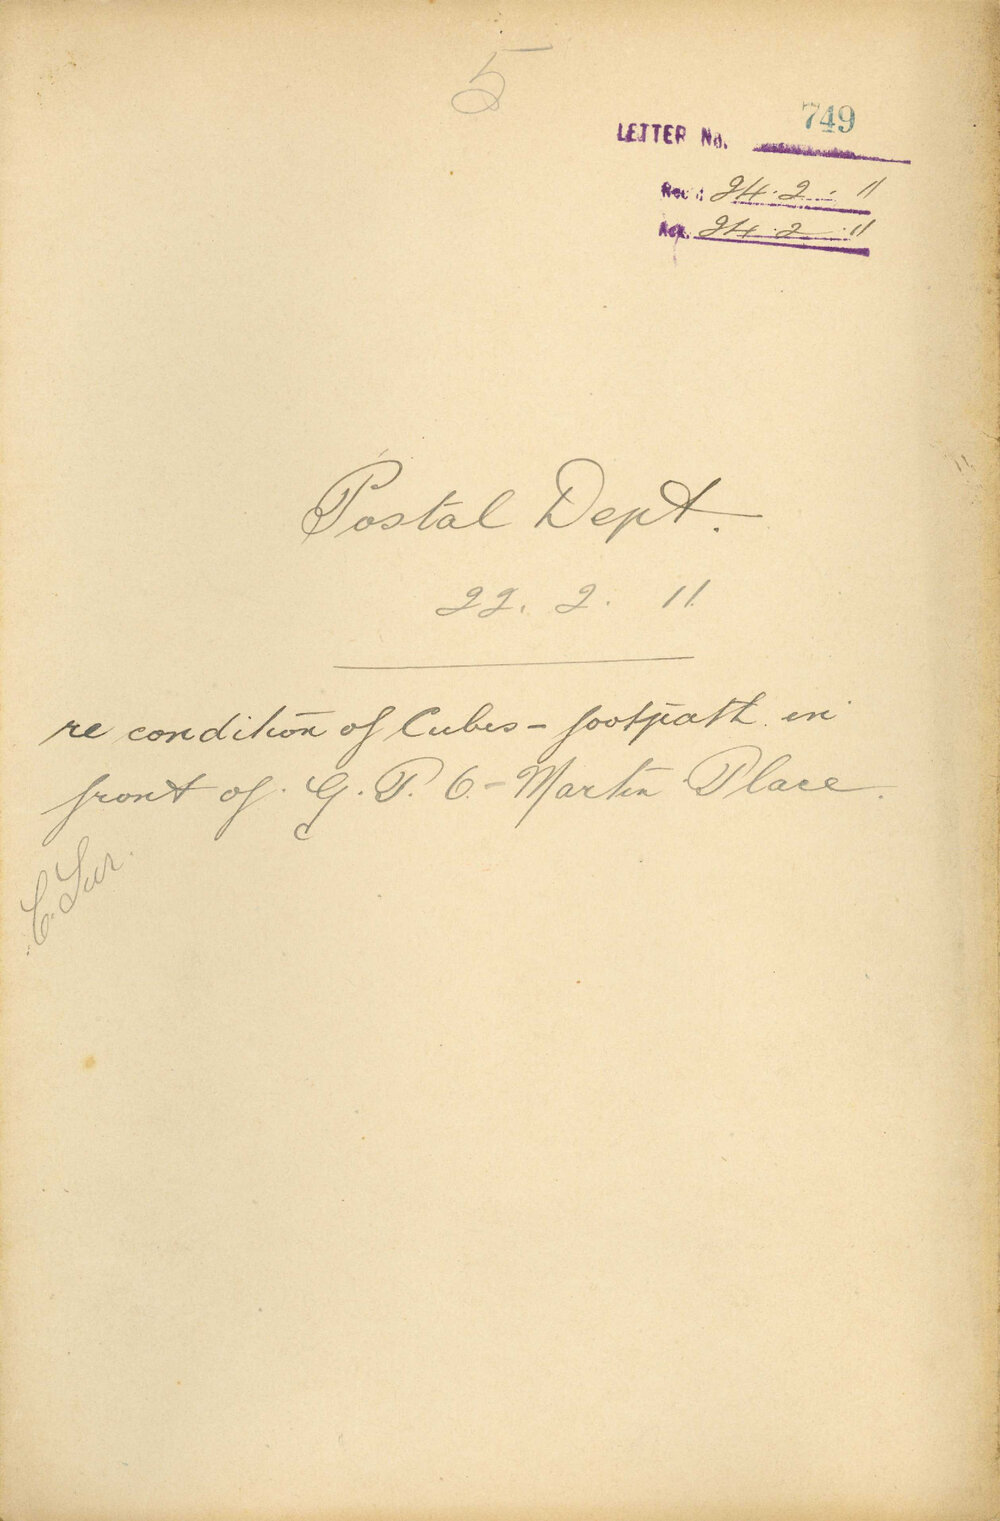 5
LETTER No. 749
Rec: 24.2.11
Ack. 24.2.11
Postal Dept.
22. 2. 11
re condition of Cubes - footpath in
front of G. P. O. - Martin Place.
C. Sur.